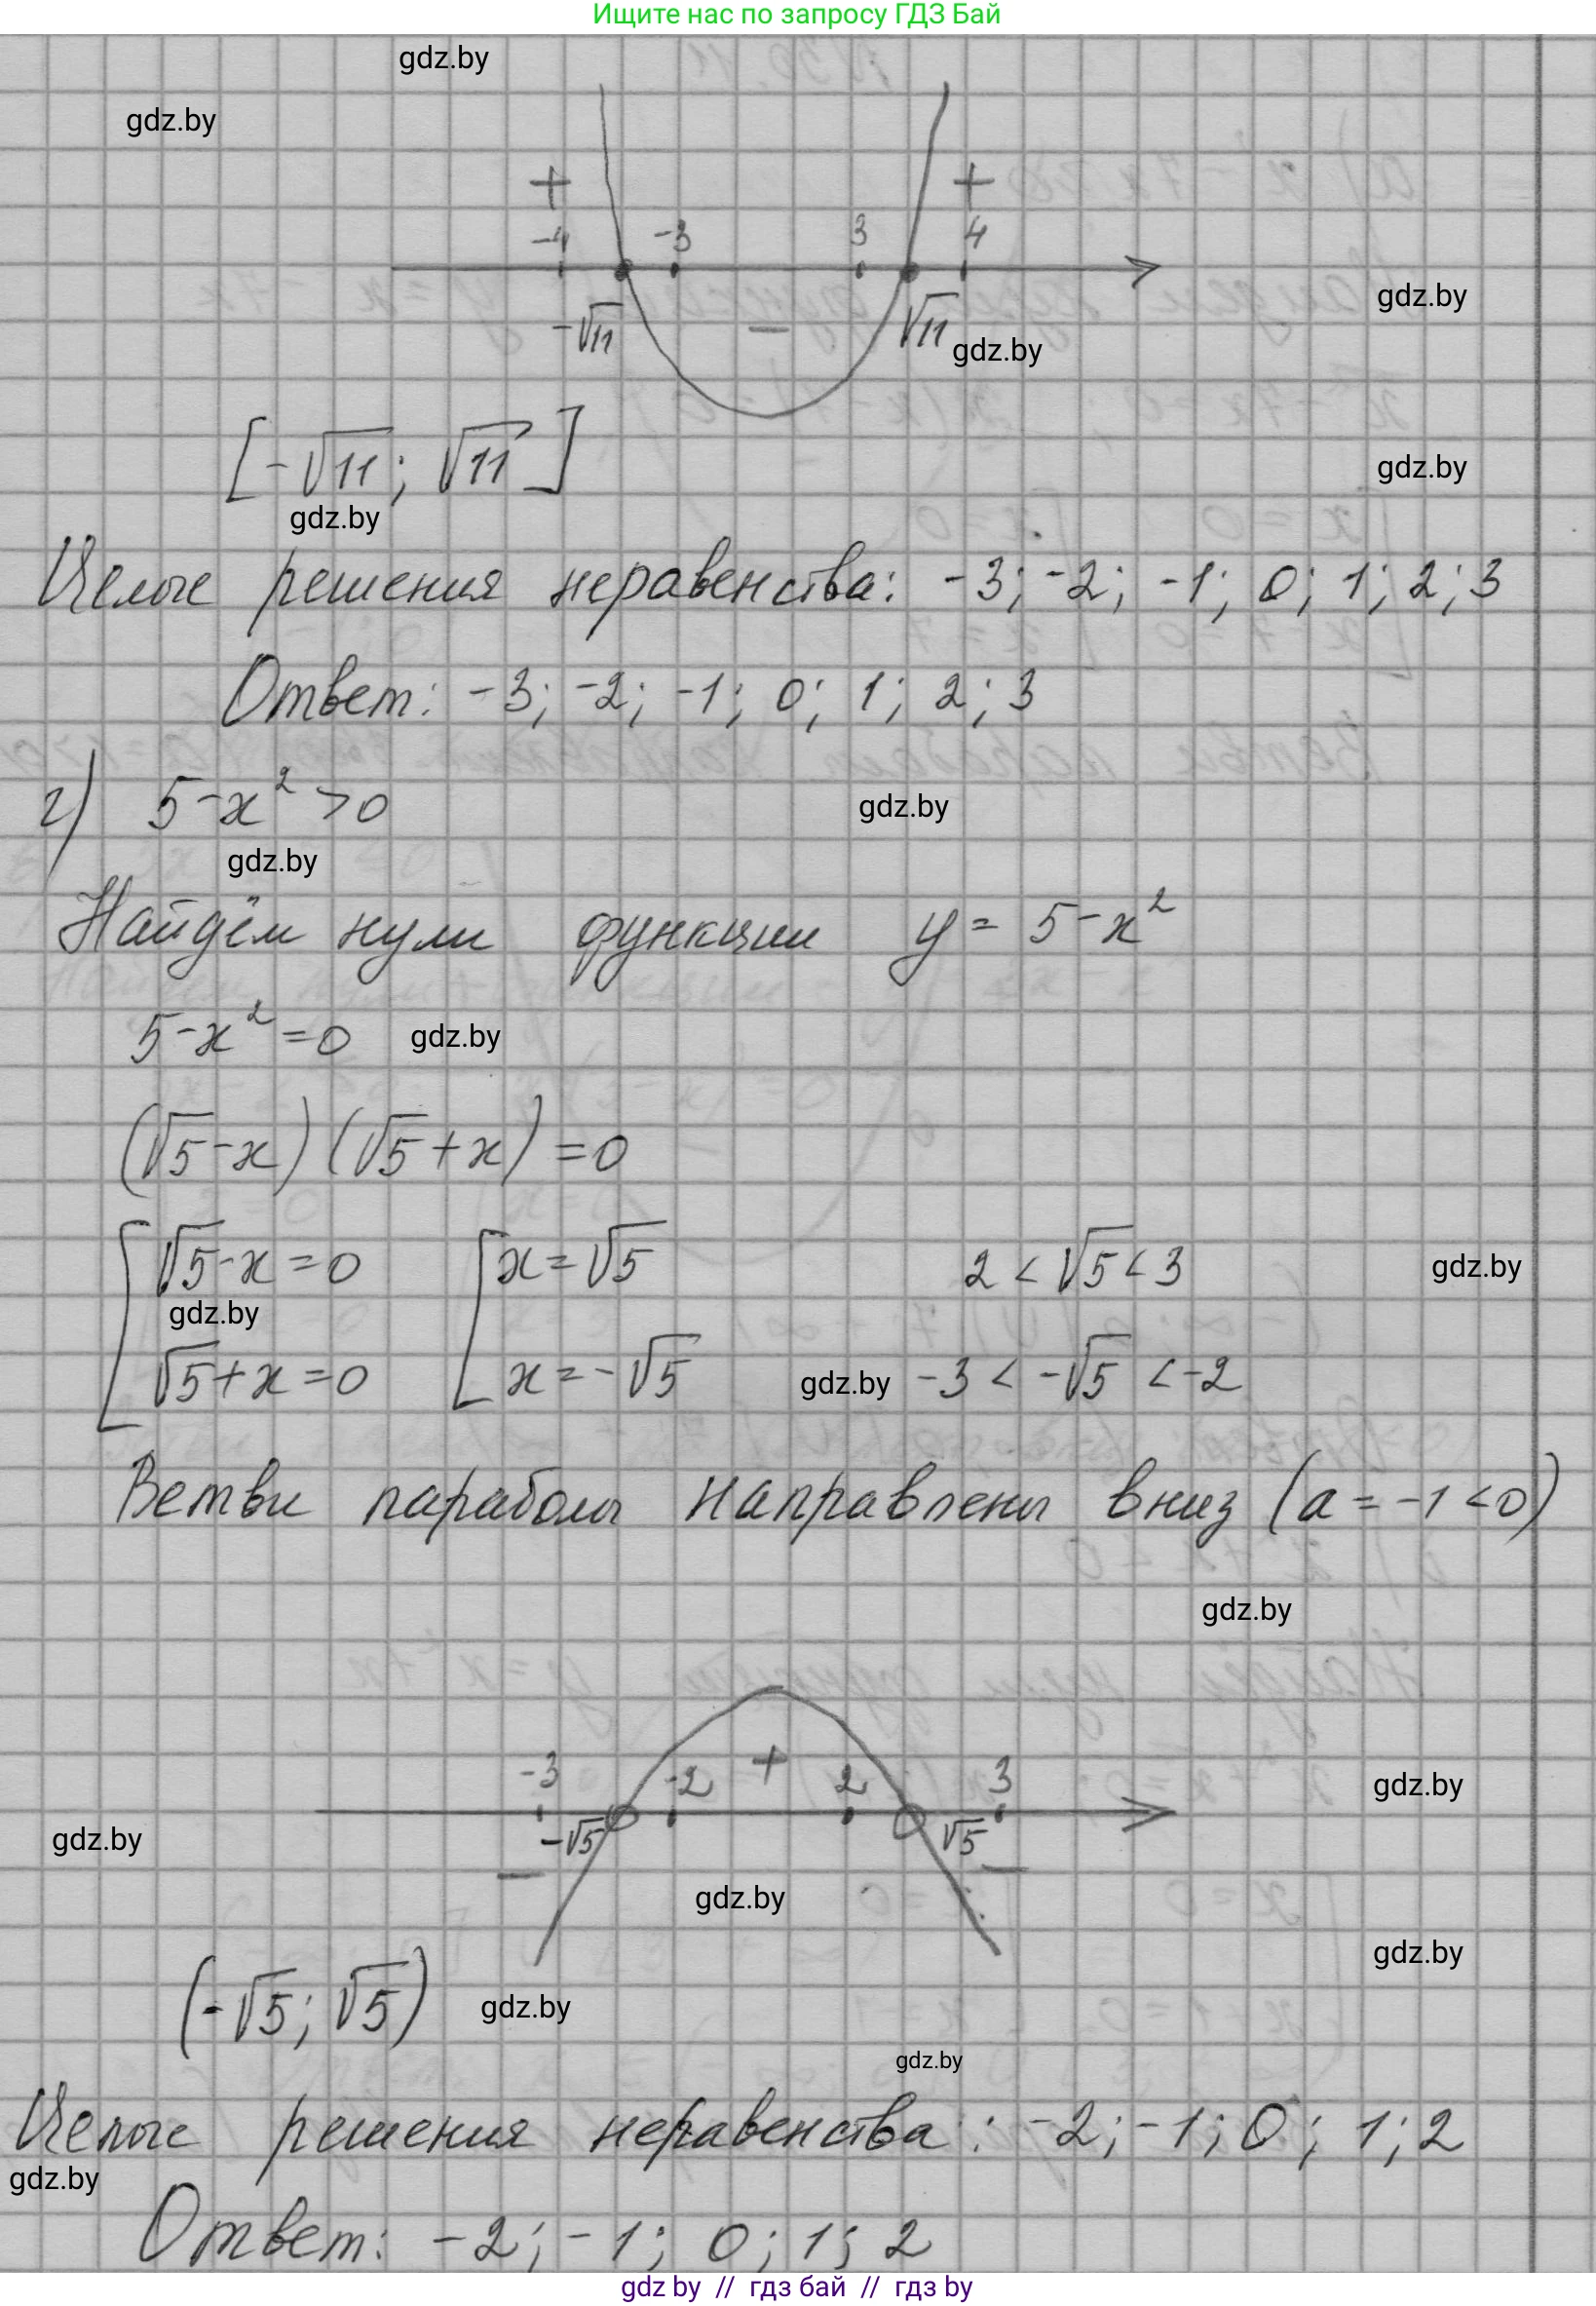 Ищите нас по запросу ГДЗ Бай
gdz.by
gdz.by
+ +
-4 -3 3 4
gdz.by
-√11 − √11
gdz.by
[-√11; √11]
gdz.by
gdz.by
Целые решения неравенства: -3; -2; -1; 0; 1; 2; 3
Ответ: -3; -2; -1; 0; 1; 2; 3
г) 5-x² >0
gdz.by
gdz.by
Найдём нули функции y = 5-x²
5-x² =0
gdz.by
(√5-x)(√5+x)=0
[ √5-x=0 [ x=√5 2<√5<3
gdz.by
gdz.by
√5+x=0 x=-√5 -3 < -√5 <-2
gdz.by
Ветви параболы направлены вниз (a = -1 <0)
gdz.by
-3 -2 + 2 3
gdz.by
-√5 √5
gdz.by
− −
gdz.by
gdz.by
(-√5; √5)
gdz.by
gdz.by
Целые решения неравенства: -2; -1; 0; 1; 2
gdz.by
Ответ: -2; -1; 0; 1; 2
gdz by // гдз бай // гдз by